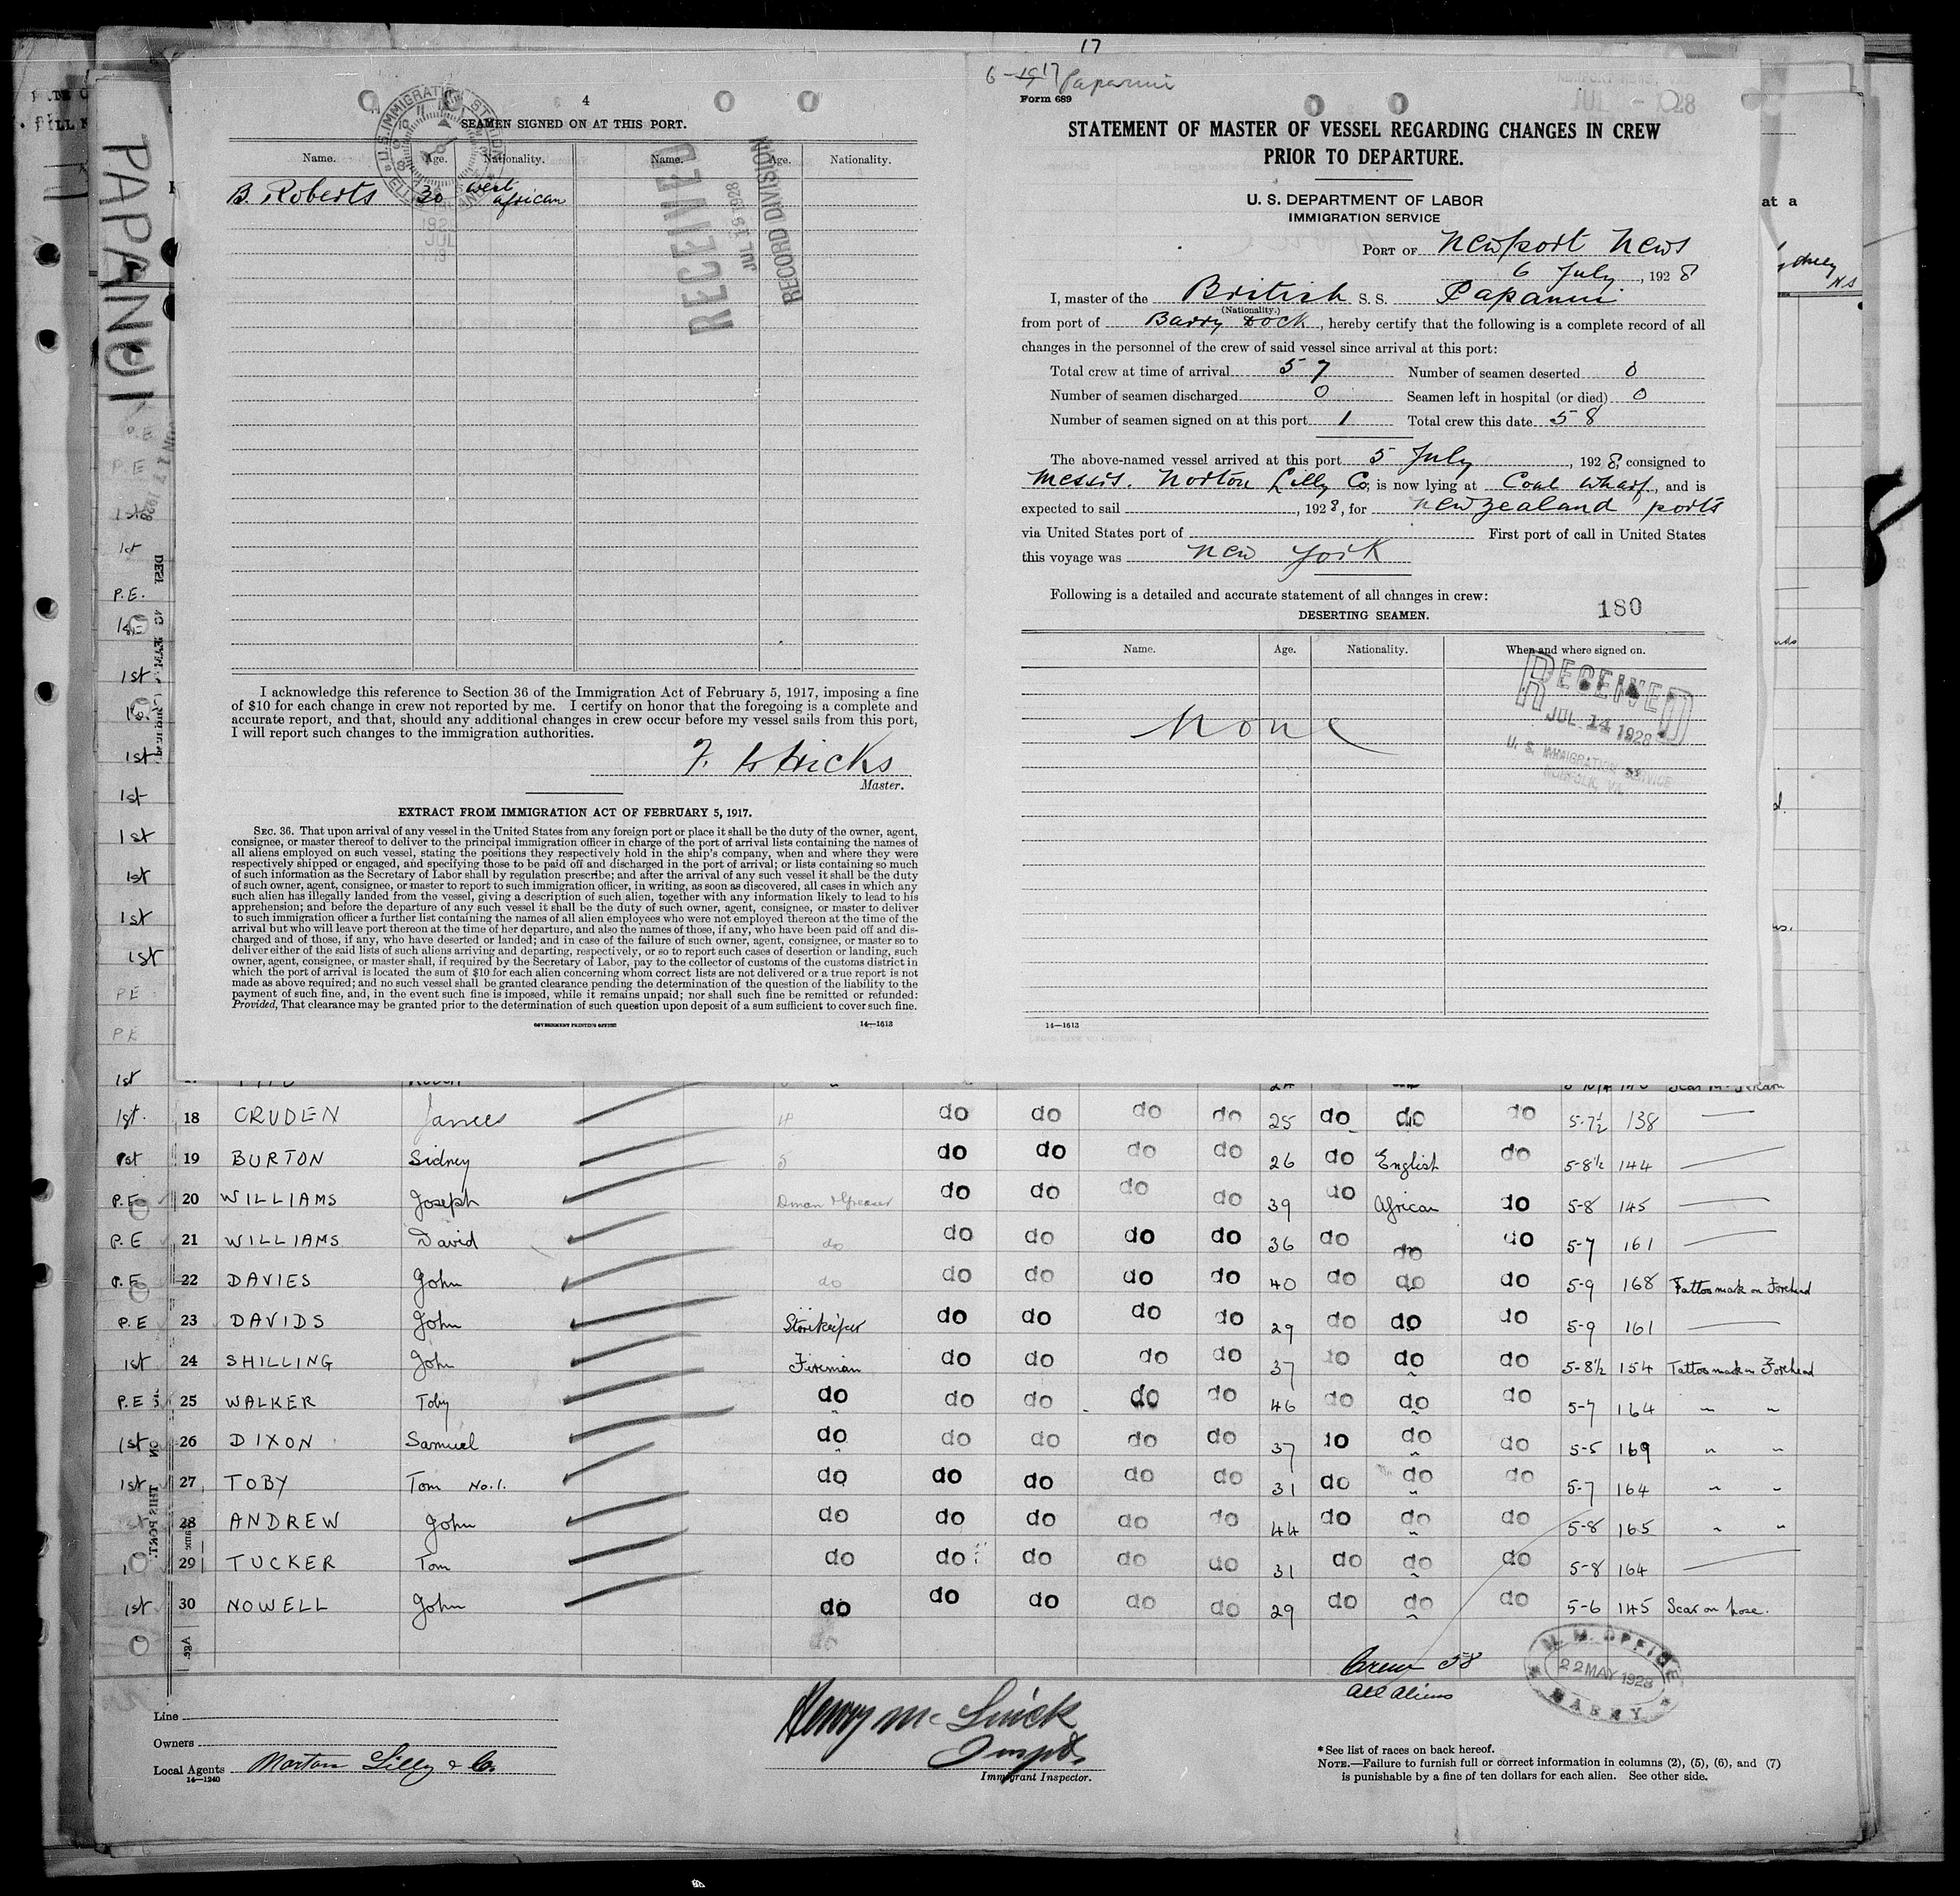 17
PAPANUI
4
SEAMEN SIGNED ON AT THIS PORT.
Name. Age. Nationality. Name. Age. Nationality.
B. Roberts 30 West African
U.S. IMMIGRATION STATION
RECEIVED
JUL 1928
RECORD DIVISION
I acknowledge this reference to Section 36 of the Immigration Act of February 5, 1917, imposing a fine
of $10 for each change in crew not reported by me. I certify on honor that the foregoing is a complete and
accurate report, and that, should any additional changes in crew occur before my vessel sails from this port,
I will report such changes to the immigration authorities.
Hicks
Master.
EXTRACT FROM IMMIGRATION ACT OF FEBRUARY 5, 1917.
SEC. 36. That upon arrival of any vessel in the United States from any foreign port or place it shall be the duty of the owner, agent,
consignee, or master thereof to deliver to the principal immigration officer in charge of the port of arrival lists containing the names of
all aliens employed on such vessel, stating the positions they respectively hold in the ship's company, when and where they were
respectively shipped or engaged, and specifying those to be paid off and discharged in the port of arrival; or lists containing so much
of such information as the Secretary of Labor shall by regulation prescribe; and after the arrival of any such vessel it shall be the duty
of such owner, agent, consignee, or master to report to such immigration officer, in writing, as soon as discovered, all cases in which any
such alien has illegally landed from the vessel, giving a description of such alien, together with any information likely to lead to his
apprehension; and before the departure of any such vessel it shall be the duty of such owner, agent, consignee, or master to deliver
to such immigration officer a further list containing the names of all alien employees who were not employed thereon at the time of the
arrival but who will leave port thereon at the time of her departure, and also the names of those, if any, who have been paid off and dis-
charged and of those, if any, who have deserted or landed; and in case of the failure of such owner, agent, consignee, or master so to
deliver either of the said lists of such aliens arriving and departing, respectively, or so to report such cases of desertion or landing, such
owner, agent, consignee, or master shall, if required by the Secretary of Labor, pay to the collector of customs of the customs district in
which the port of arrival is located the sum of $10 for each alien concerning whom correct lists are not delivered or a true report is not
made as above required; and no such vessel shall be granted clearance pending the determination of the question of the liability to the
payment of such fine, and, in the event such fine is imposed, while it remains unpaid; nor shall such fine be remitted or refunded:
Provided, That clearance may be granted prior to the determination of such question upon deposit of a sum sufficient to cover such fine.
GOVERNMENT PRINTING OFFICE 14—1613
Papanui
Form 689
STATEMENT OF MASTER OF VESSEL REGARDING CHANGES IN CREW
PRIOR TO DEPARTURE.
U. S. DEPARTMENT OF LABOR
IMMIGRATION SERVICE
PORT OF Newport News
6 July, 1928
I, master of the British S. S. Papanui
(Nationality.)
from port of Barry Dock, hereby certify that the following is a complete record of all
changes in the personnel of the crew of said vessel since arrival at this port:
Total crew at time of arrival 57 Number of seamen deserted 0
Number of seamen discharged 0 Seamen left in hospital (or died) 0
Number of seamen signed on at this port 1 Total crew this date 58
The above-named vessel arrived at this port 5 July, 1928, consigned to
Messrs. Norton Lilly Co, is now lying at Coal Wharf, and is
expected to sail , 1928, for New Zealand ports
via United States port of First port of call in United States
this voyage was New York
Following is a detailed and accurate statement of all changes in crew:
180
DESERTING SEAMEN.
Name. Age. Nationality. When and where signed on.
None
RECEIVED
JUL 14 1928
U. S. IMMIGRATION SERVICE
NORFOLK, VA.
14—1613
1st 18 CRUDEN James do do do do 25 do do do 5-7½ 138
1st 19 BURTON Sidney do do do do 26 do English do 5-8½ 144
P.E 20 WILLIAMS Joseph do do do do 39 do African do 5-8 145
P.E 21 WILLIAMS David do do do do do 36 do do do 5-7 161
P.E 22 DAVIES John do do do do do 40 do do do 5-9 168 Tattoo mark on Forehead
P.E 23 DAVIDS John Storekeeper do do do do 29 do do do 5-9 161
1st 24 SHILLING John Fireman do do do do 37 do do do 5-8½ 154 Tattoo mark on Forehead
P.E 25 WALKER Toby do do do do do 46 do do do 5-7 164 " "
1st 26 DIXON Samuel do do do do do 37 do do do 5-5 169 " "
1st 27 TOBY Tom No.1. do do do do do 31 do do do 5-7 164 " "
1st 28 ANDREW John do do do do do 44 do do do 5-8 165 " "
29 TUCKER Tom do do do do do 31 do do do 5-8 164
1st 30 NOWELL John do do do do do 29 do do do 5-6 145 Scar on nose.
do
Crew 58
All Aliens
M. M. OFFICE
22 MAY 1928
BARRY
Line
Owners
Local Agents Norton Lilly & Co.
14—1240
Immigrant Inspector.
*See list of races on back hereof.
NOTE.—Failure to furnish full or correct information in columns (2), (5), (6), and (7)
is punishable by a fine of ten dollars for each alien. See other side.